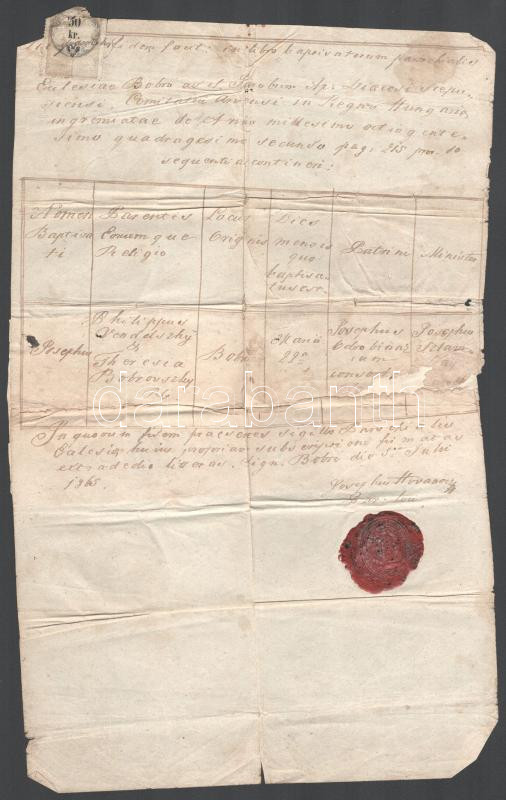 50
kr.
fidem in libro baptisatorum parochialis
Ecclesiae Bobro ad S. Jacobum Ap: Diacesi Scepu-
siensi, Comitatu Arvensi in Regno Hungariae
ingremiatae de Anno millesimo octingente-
simo quadragesimo secundo pag: 215
sequentia contineri:
Nomen
Baptisa
ti
Parentis
Eorumque
Religio
Locus
Originis
Dies
mensis
quo
baptisa-
tus est
Patrini
Minister
Josephus
Philippus
&
Theresia
Bobrovszky
Bobro
22a
Josephus
consors
Josephus
In quorum fidem praesentes sigillo Parochiales
Ecclesiae hujus propriae subscriptione firmatas
extradedi literas. Sign. Bobro die 5a Julii
1865.
Josephus
darabanth